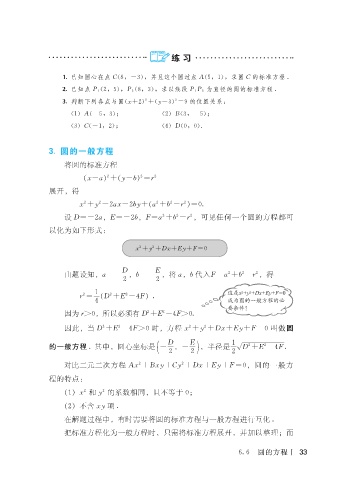 练 习
1. 已知圆心在点C(6,-3),并且这个圆过点A(5,1),求圆C的标准方程.
2. 已知点P₁(2,5),P₂(8,3),求以线段P₁P₂为直径的圆的标准方程.
3. 判断下列各点与圆(x+2)²+(y-3)²=9的位置关系:
(1) A( 5,3); (2) B(3, 5);
(3) C(-1,2); (4) D(0,0).
3. 圆的一般方程
将圆的标准方程
(x-a)²+(y-b)²=r²
展开,得
x²+y²-2ax-2by+(a²+b²-r²)=0.
设D=-2a,E=-2b,F=a²+b²-r²,可见任何一个圆的方程都可
以化为如下形式:
x²+y²+Dx+Ey+F=0
由题设知,a D/2,b E/2,将a,b代入F a²+b² r²,得
r²=1/4(D²+E² 4F).
这是x²+y²+Dx+Ey+F=0
成为圆的一般方程的必
要条件!
因为r>0,所以必须有D²+E²-4F>0.
因此,当D²+E² 4F>0时,方程x²+y²+Dx+Ey+F 0叫做圆
的一般方程.其中,圆心坐标是(-D/2,-E/2),半径是1/2√(D²+E² 4F).
对比二元二次方程Ax²+Bxy+Cy²+Dx+Ey+F=0,圆的一般方
程的特点:
(1) x²和y²的系数相同,且不等于0;
(2) 不含xy项.
在解题过程中,有时需要将圆的标准方程与一般方程进行互化.
把标准方程化为一般方程时,只需将标准方程展开,并加以整理;而
6.6 圆的方程 | 33